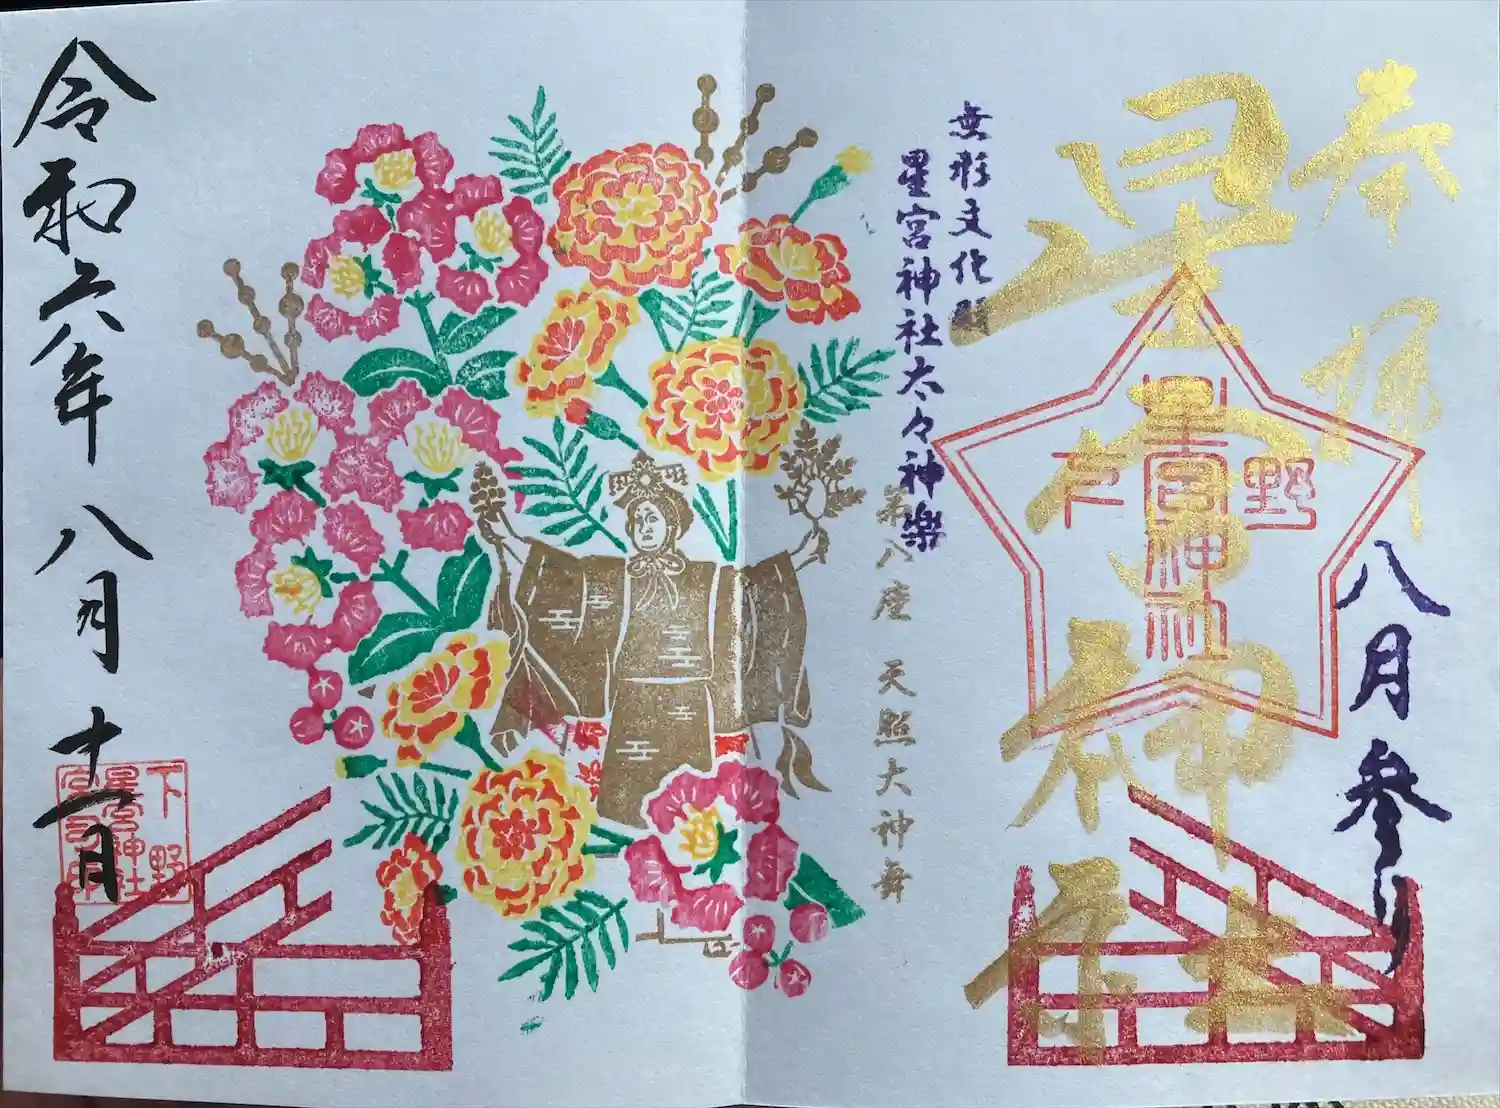 奉拝
八月参り
星宮神社
下野
星宮神社
無形文化財
星宮神社太々神楽
第八座 天照大神舞
令和六年八月十一日
下野
星宮神社